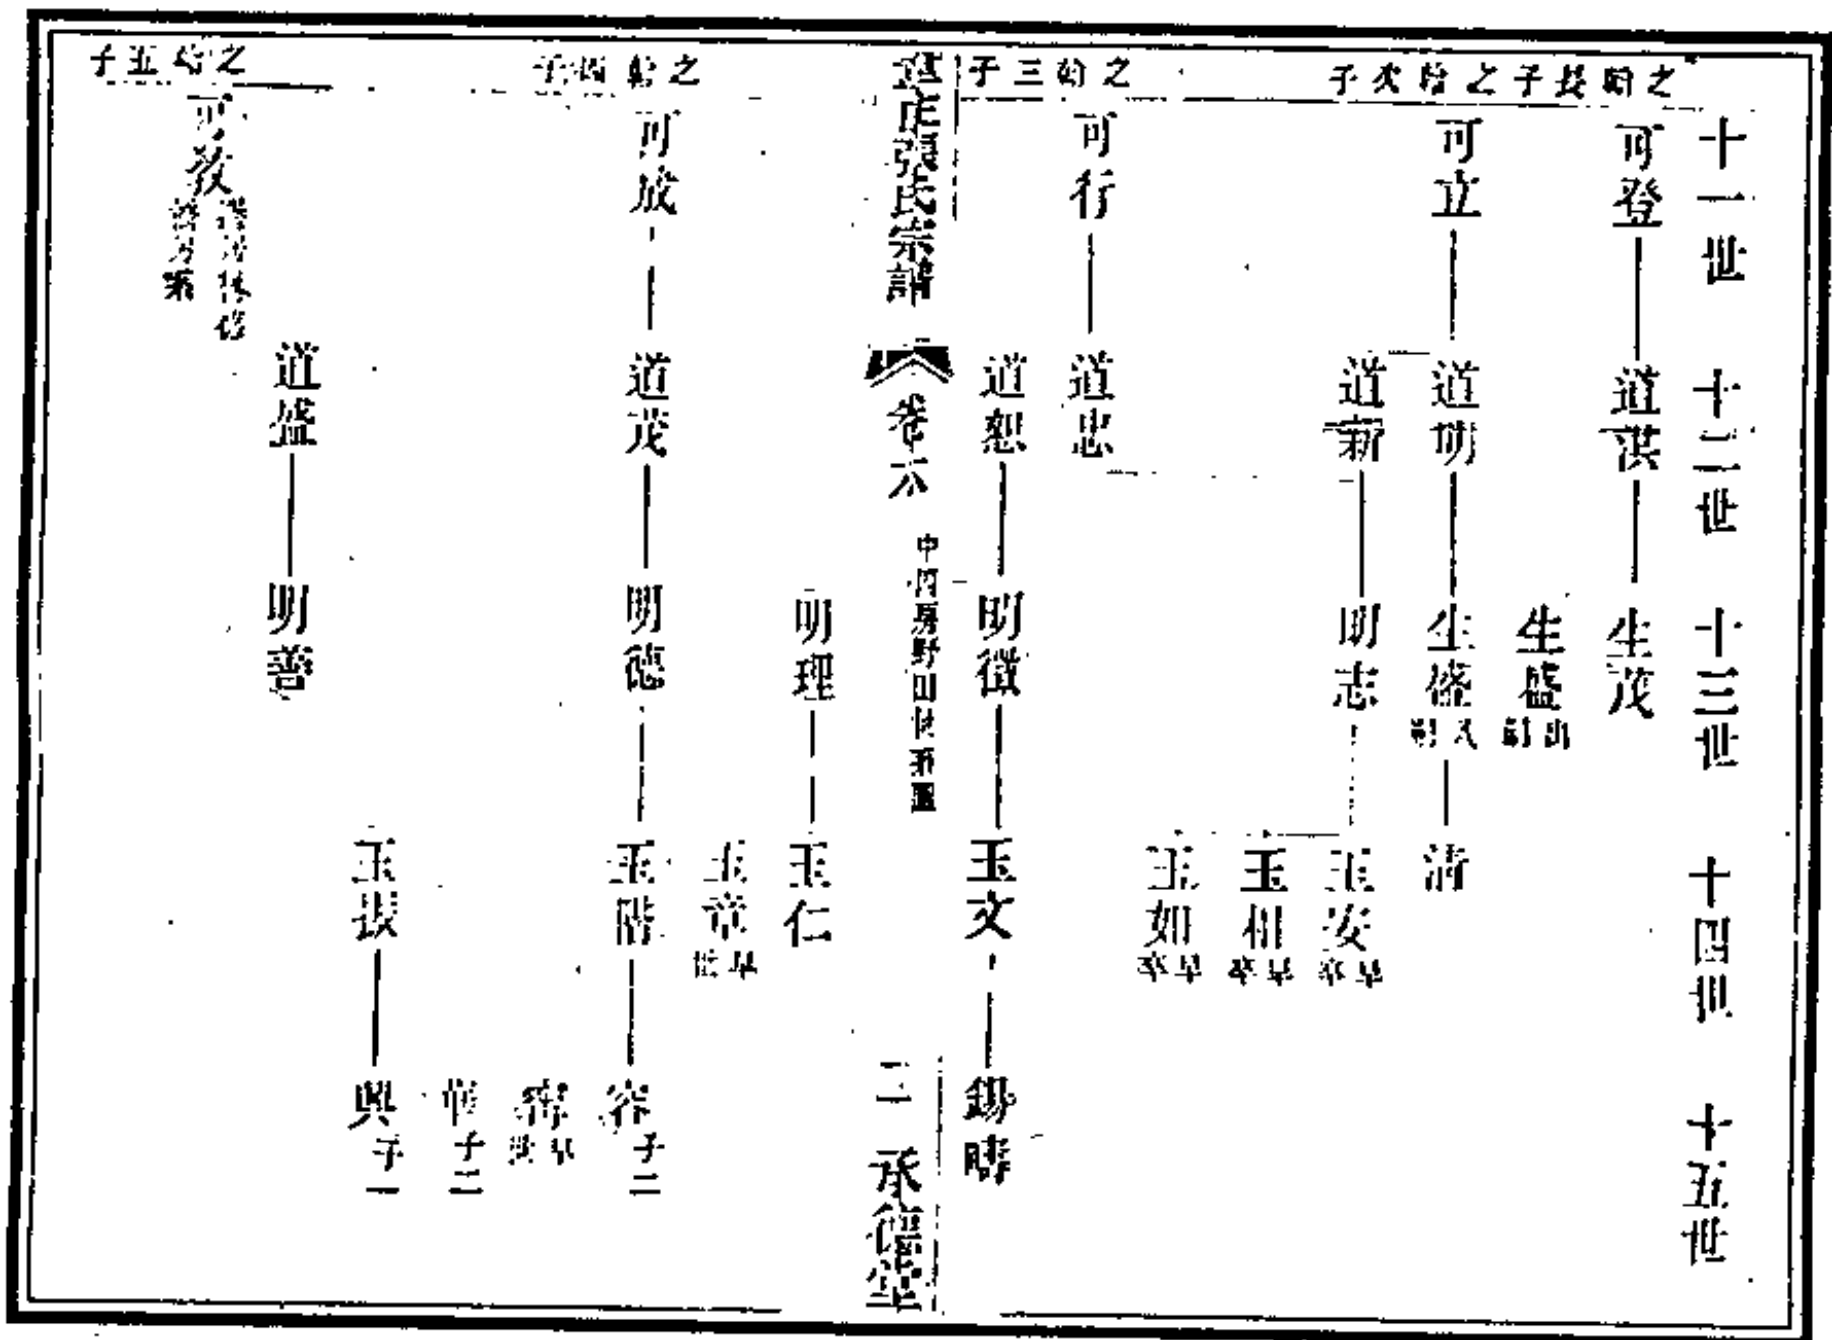 十一世
十二世
十三世
十四世
十五世
之 長子
可登
道淇
生茂
生盛 出嗣
之 次子
可立
道明
生盛 入嗣
清
道新
明志
玉安 早卒
玉相 早卒
玉如 早卒
之 三子
可行
道忠
道恕
明徵
玉文
錫疇
張氏宗譜
卷六
中 房野田 系圖
二
承德堂
明理
玉仁
玉章 早世
之 四子
可成
道茂
明德
玉階
容 子二
早世
子二
之 五子
可教
道盛
明善
玉振
興 子一